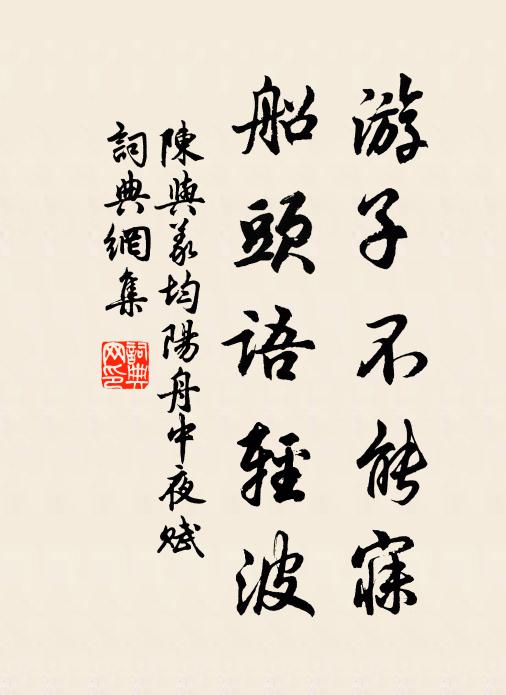 游子不能寐
船頭語輕波
陳與義均陽舟中夜賦
詞典網集
詞典网印